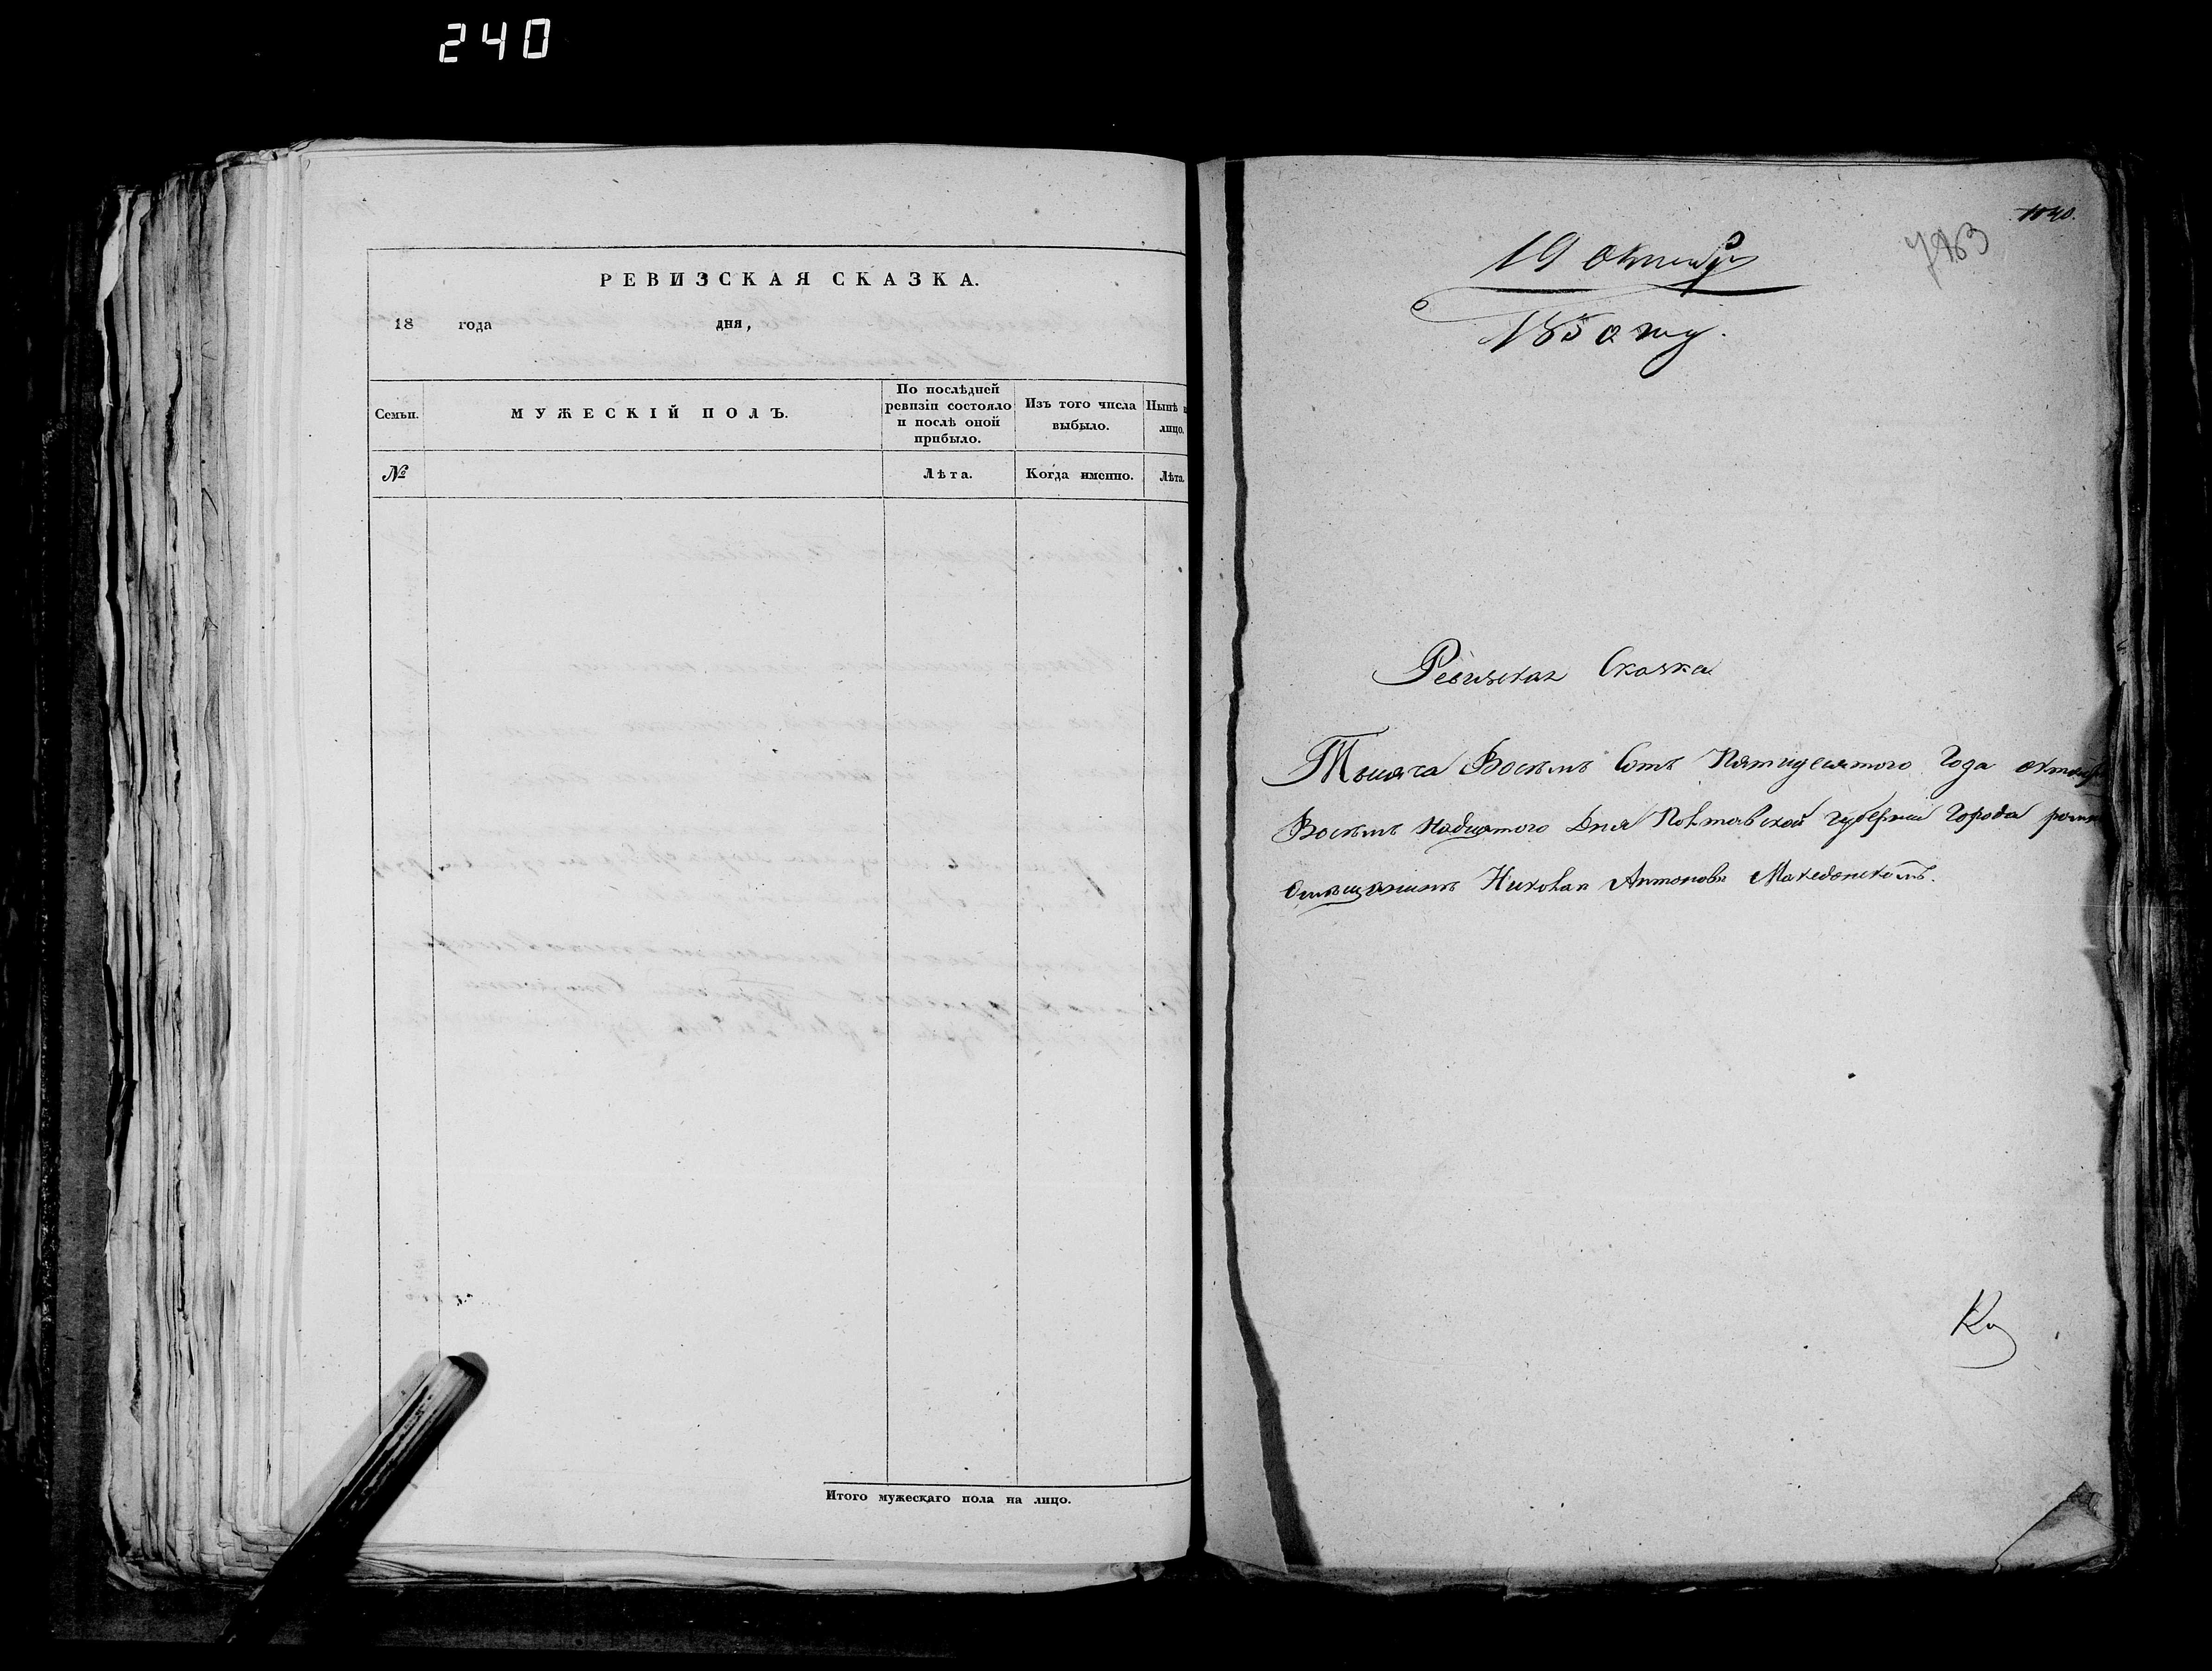 240
РЕВИЗСКАЯ СКАЗКА.
18 года дня,
Семьи.
МУЖЕСКІЙ ПОЛЪ.
По послѣдней ревизіи состояло и послѣ оной прибыло.
Изъ того числа выбыло.
Нынѣ лицо.
№
Лѣта.
Когда именно.
Лѣта.
Итого мужескаго пола на лицо.
1040.
19 октября
1850 году.
Ревизская Сказка
Тысяча Восемь Сотъ Пятидесятого Года
Восемь надцятого Дня Полтавской губернии Города
Николая Антонова